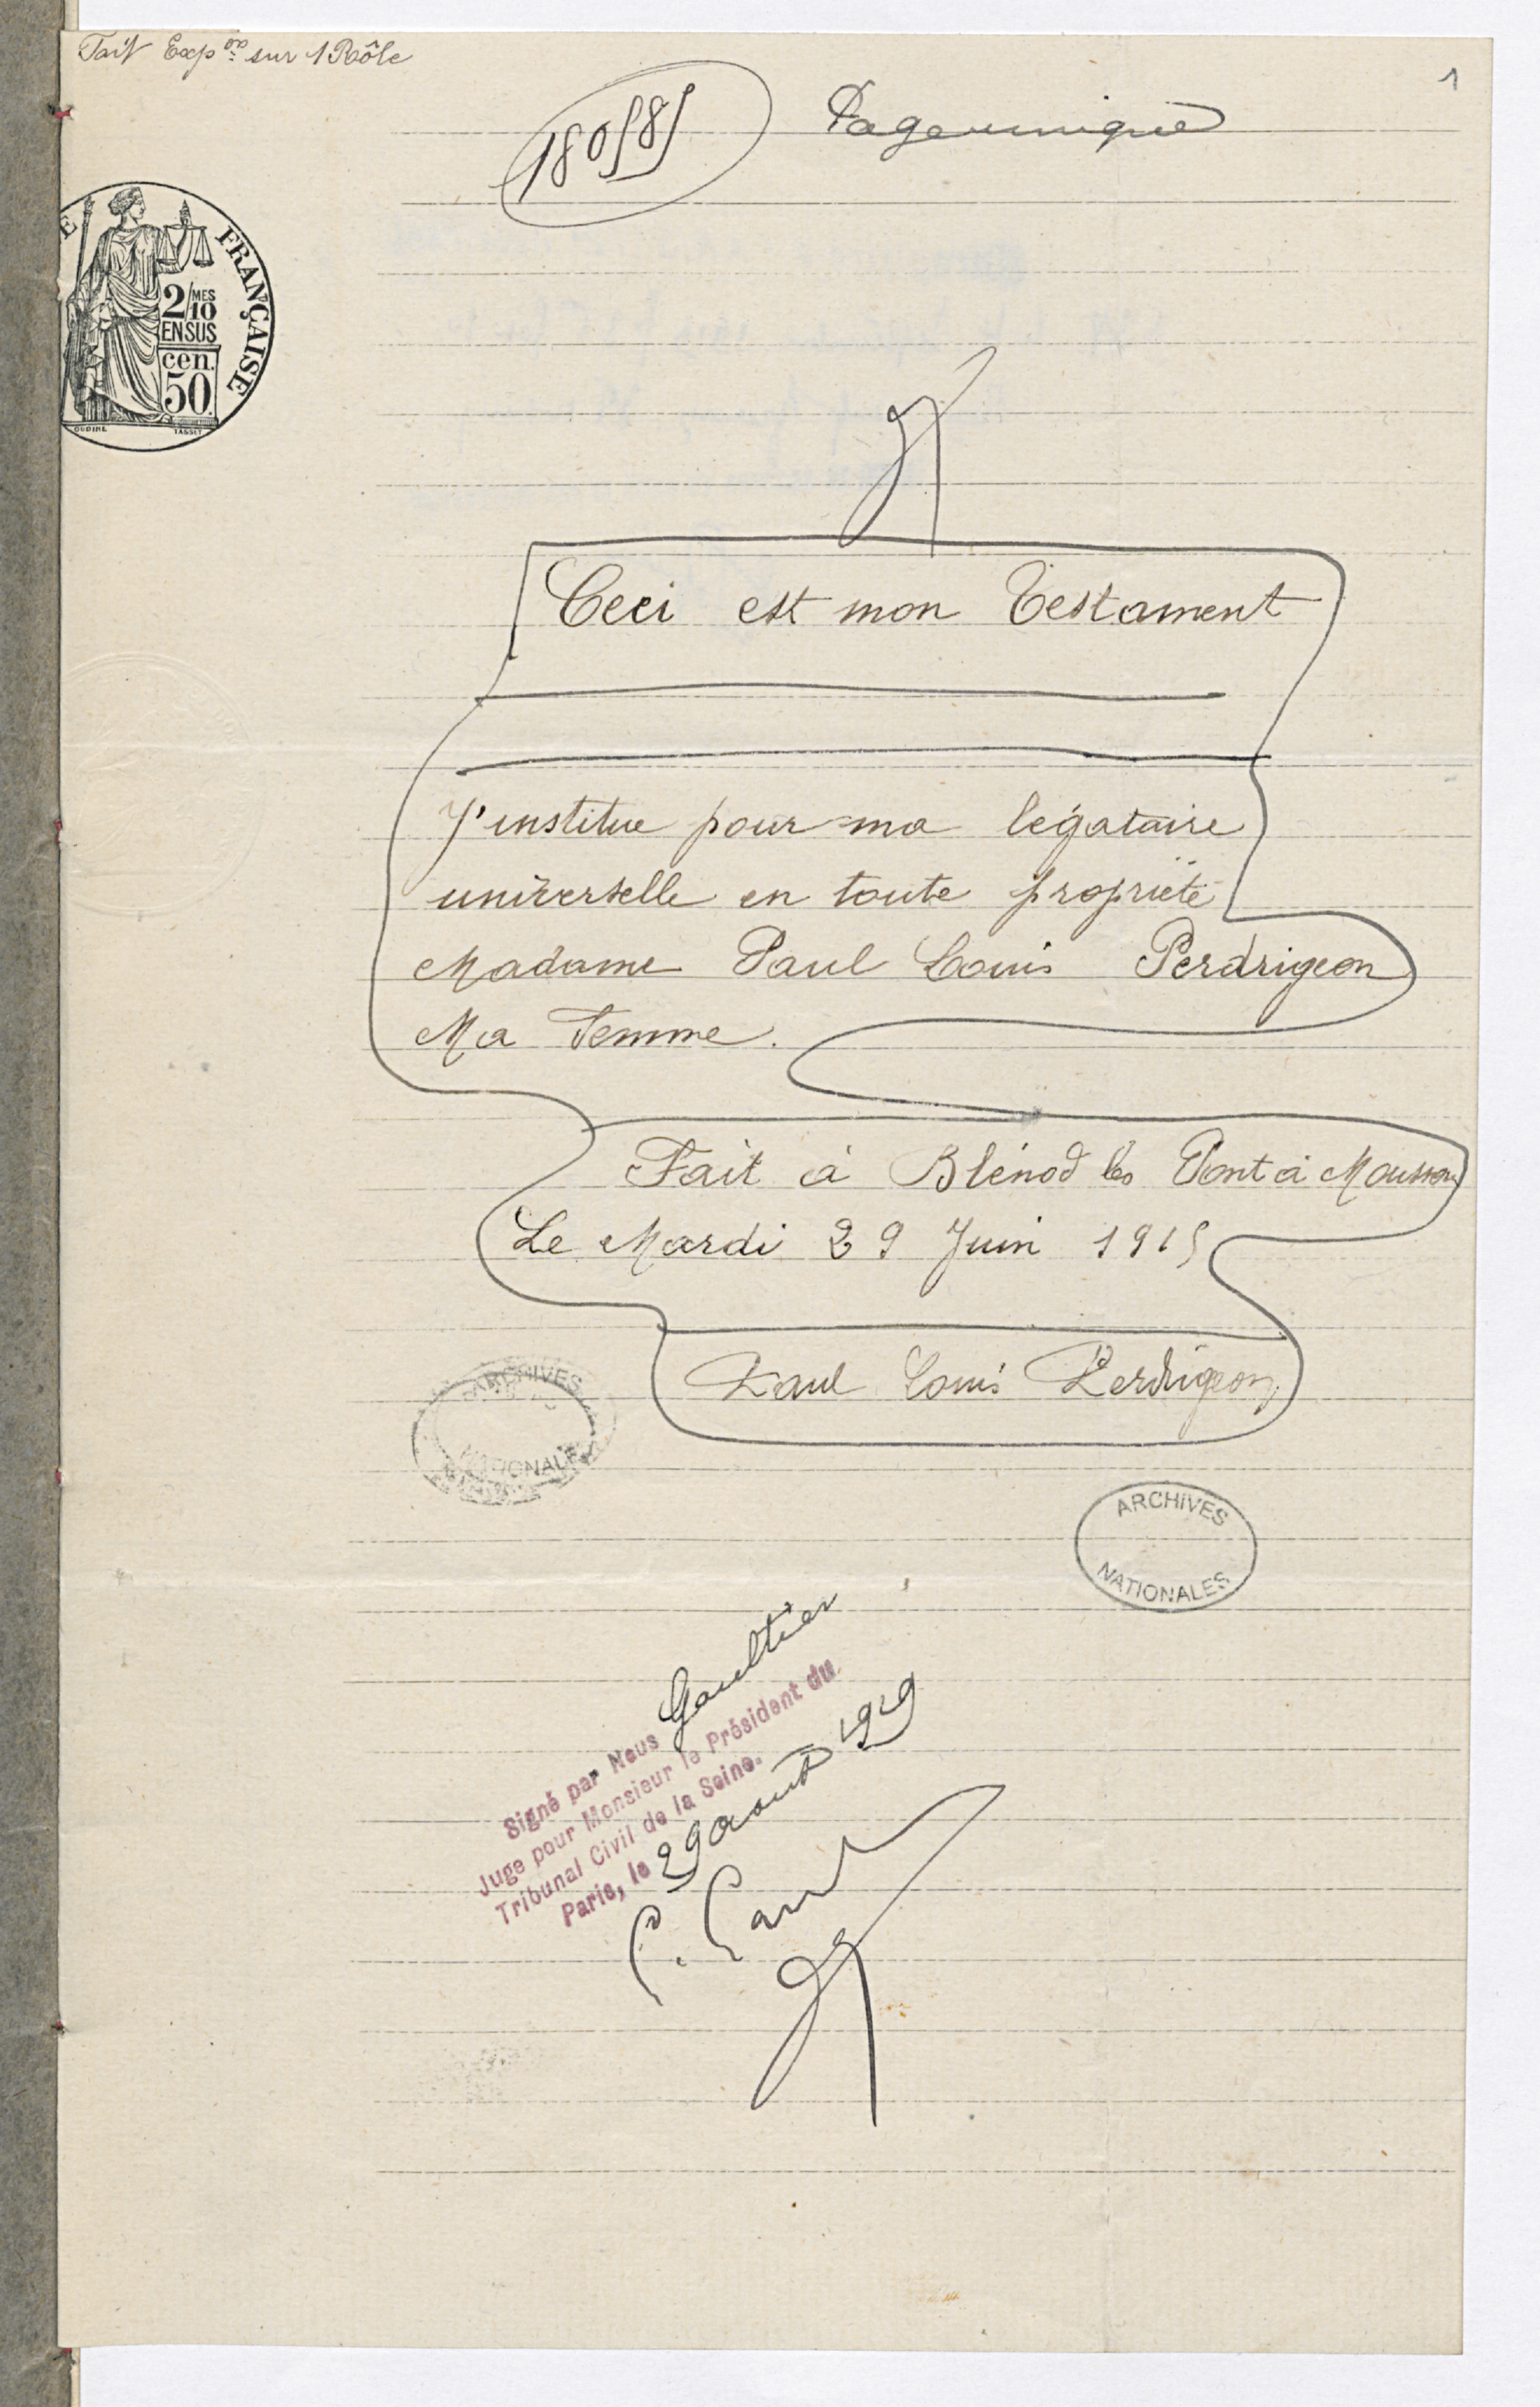 Fait Exp.on sur 1 Rôle
1
Page unique
E FRANÇAISE
2/MES
10
EN SUS
cen.
50
OUDINÉ TASSET
Ceci est mon Testament
J'institue pour ma légataire
universelle en toute propriété
Madame Paul Louis Perdrigeon
Ma Femme.
Fait à Blénod les Pont à Mousson
Le Mardi 29 Juin 1915
Paul Louis Perdrigeon
ARCHIVES
NATIONALES
ARCHIVES
NATIONALES
Signé par Nous Gaultier
Juge pour Monsieur le Président du
Tribunal Civil de la Seine.
Paris, le 29 aout 1919